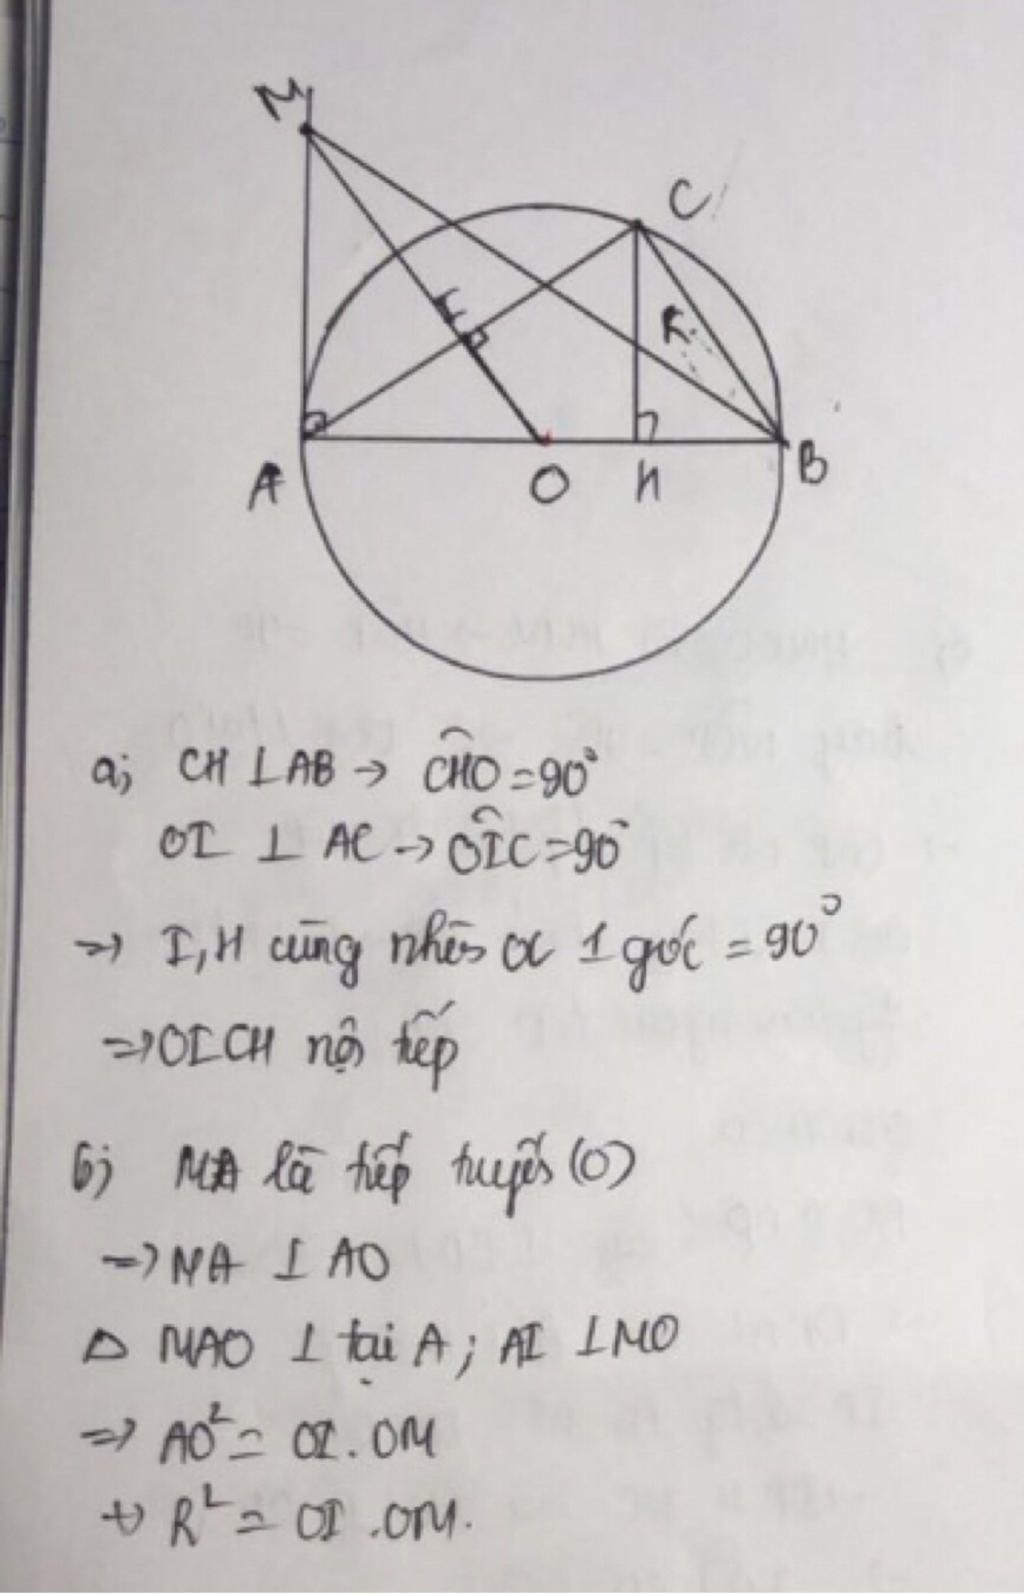 M
C
I
K
A
O
H
B
a; CH ⊥ AB → CHO = 90°
OI ⊥ AC → OIC = 90°
=> I, H cùng nhìn OC 1 góc = 90°
=> OICH nội tiếp
b; MA là tiếp tuyến (O)
=> MA ⊥ AO
Δ MAO ⊥ tại A; AI ⊥ MO
=> AO² = OI. OM
=> R² = OI .OM.